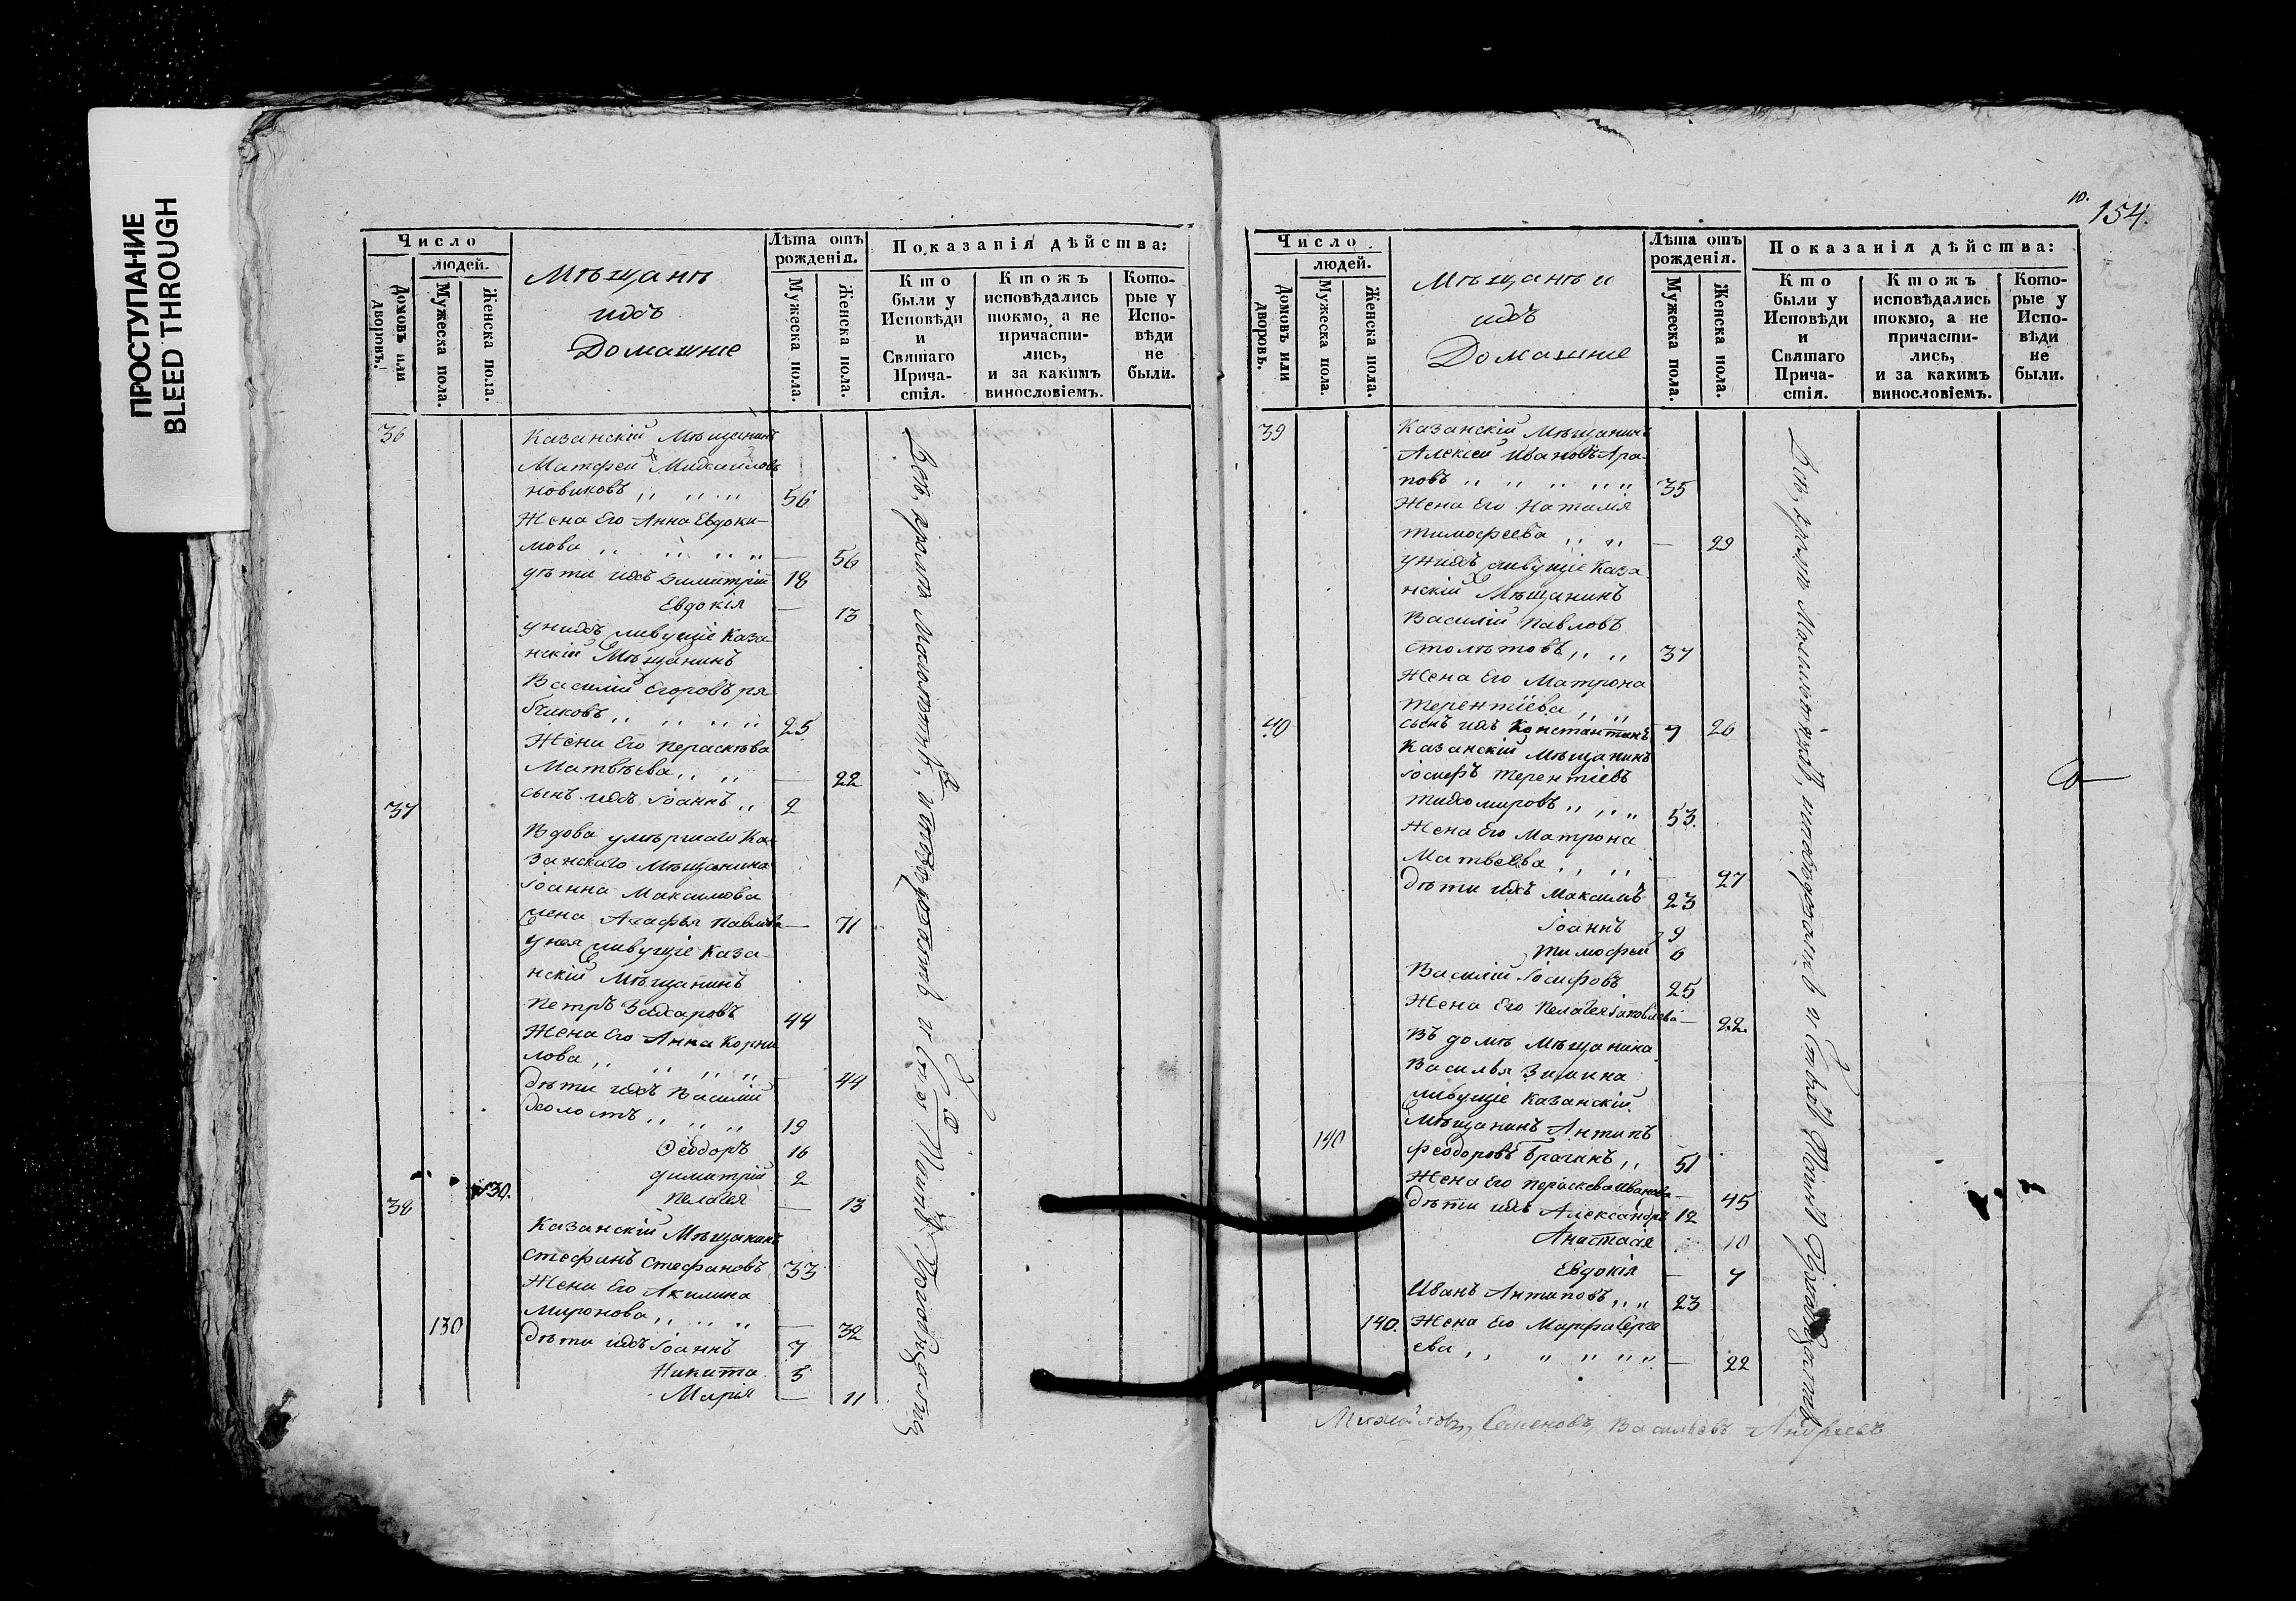 ПРОСТУПАНИЕ
BLEED THROUGH
Число
людей.
Домовъ или дворовъ.
Мужеска пола.
Женска пола.
Мѣщанѣ
ихъ
Домашніе
Лѣта отъ
рожденія.
Мужеска пола.
Женска пола.
Показанія дѣйства:
Кто
были у
Исповѣди
и
Святаго
Прича-
стія.
Ктожъ
исповѣдались
токмо, а не
причасти-
лись,
и за какимъ
винословіемъ.
Кото-
рые у
Испо-
вѣди
не
были.
36 Казанскій Мѣщанинъ
Матфей Михаиловъ
новиковъ ,, ,, ,, 56
Жена Его Анна Евдоки-
мова ,, ,, ,, ,, — 56
дѣти ихъ Димитрій 18
Евдокія — 13
унихъ живущіе Каза-
нскій Мѣщанинъ
Василій Егоровъ ря
бчиковъ ,, ,, ,, ,, 25.
Жена Его Пераскѣва
Матвѣева ,, ,, — 22
сынъ ихъ Іоаннъ ,, 2
37
Вдова умѣршаго Ка-
занскаго Мѣщанина
Іоанна Максимова
жена Агафья Павлова — 71
унея живущіе Каза-
нскій Мѣщанинъ
Петръ Захаровъ 44
Жена Его Анна Корни
лова ,, ,, ,, ,, 44
дѣти ихъ Василій
холостъ ,, ,, ,, 19
Ѳеодоръ 16
Димитрій 2
130. Пелагея — 13
38
Казанскій Мѣщанинъ
Стефанъ Стефановъ 33
Жена Его Акилина
Миронова ,, ,, ,, — 32
130 дѣти ихъ Іоаннъ 7
Никита 5
Марія — 11
Всѣ, кромѣ Малолѣтныхъ, исповѣдались и Святыхъ Таинъ Пріобщались
10.
154.
Число
людей.
Домовъ или дворовъ.
Мужеска пола.
Женска пола.
Мѣщанѣ и
ихъ
Домашніе
Лѣта отъ
рожденія.
Мужеска пола.
Женска пола.
Показанія дѣйства:
Кто
были у
Исповѣди
и
Святаго
Прича-
стія.
Ктожъ
исповѣдались
токмо, а не
причасти-
лись,
и за какимъ
винословіемъ.
Кото-
рые у
Испо-
вѣди
не
были.
39 Казанскій Мѣщанинъ
Алексей Ивановъ Ара-
повъ ,, ,, ,, ,, ,, 35
Жена Его Наталія
Тимофеева ,, ,, — 29
унихъ живущіе Каза
нскій Мѣщанинъ
Василій Павловъ
столѣтовъ ,, ,, 37
Жена Его Матрона
Терентіева ,, ,, — 26
40 сынъ ихъ Константинъ 7
Казанскій Мѣщанинъ
Іосифъ Терентіевъ
тихомировъ ,, ,, ,, 53.
Жена Его Матрона
Матвеева ,, ,, — 27
дѣти ихъ Максимъ 23
Іоаннъ 9
Тимофей 6
Василій Іосифовъ 25
Жена Его Пелагея Іаковлева — 22.
Въ домѣ Мѣщанина
Василья Зимина
живущіе Казанскій
Мѣщанинъ Антипъ
140 Ѳеодоровъ Брагинъ ,, 51
Жена Его Пераскева Иванова — 45
дѣти ихъ Александръ 12
Анастасія 10
Евдокія — 7
Иванъ Антиповъ ,, ,, 23
140. Жена Его Марфа Серге
ева ,, ,, ,, ,, ,, — 22
Всѣ, кромѣ Малолѣтныхъ, исповѣдались и Святыхъ Таинъ Пріобщались
Михайловъ, Семеновъ, Васильевъ Андреевъ